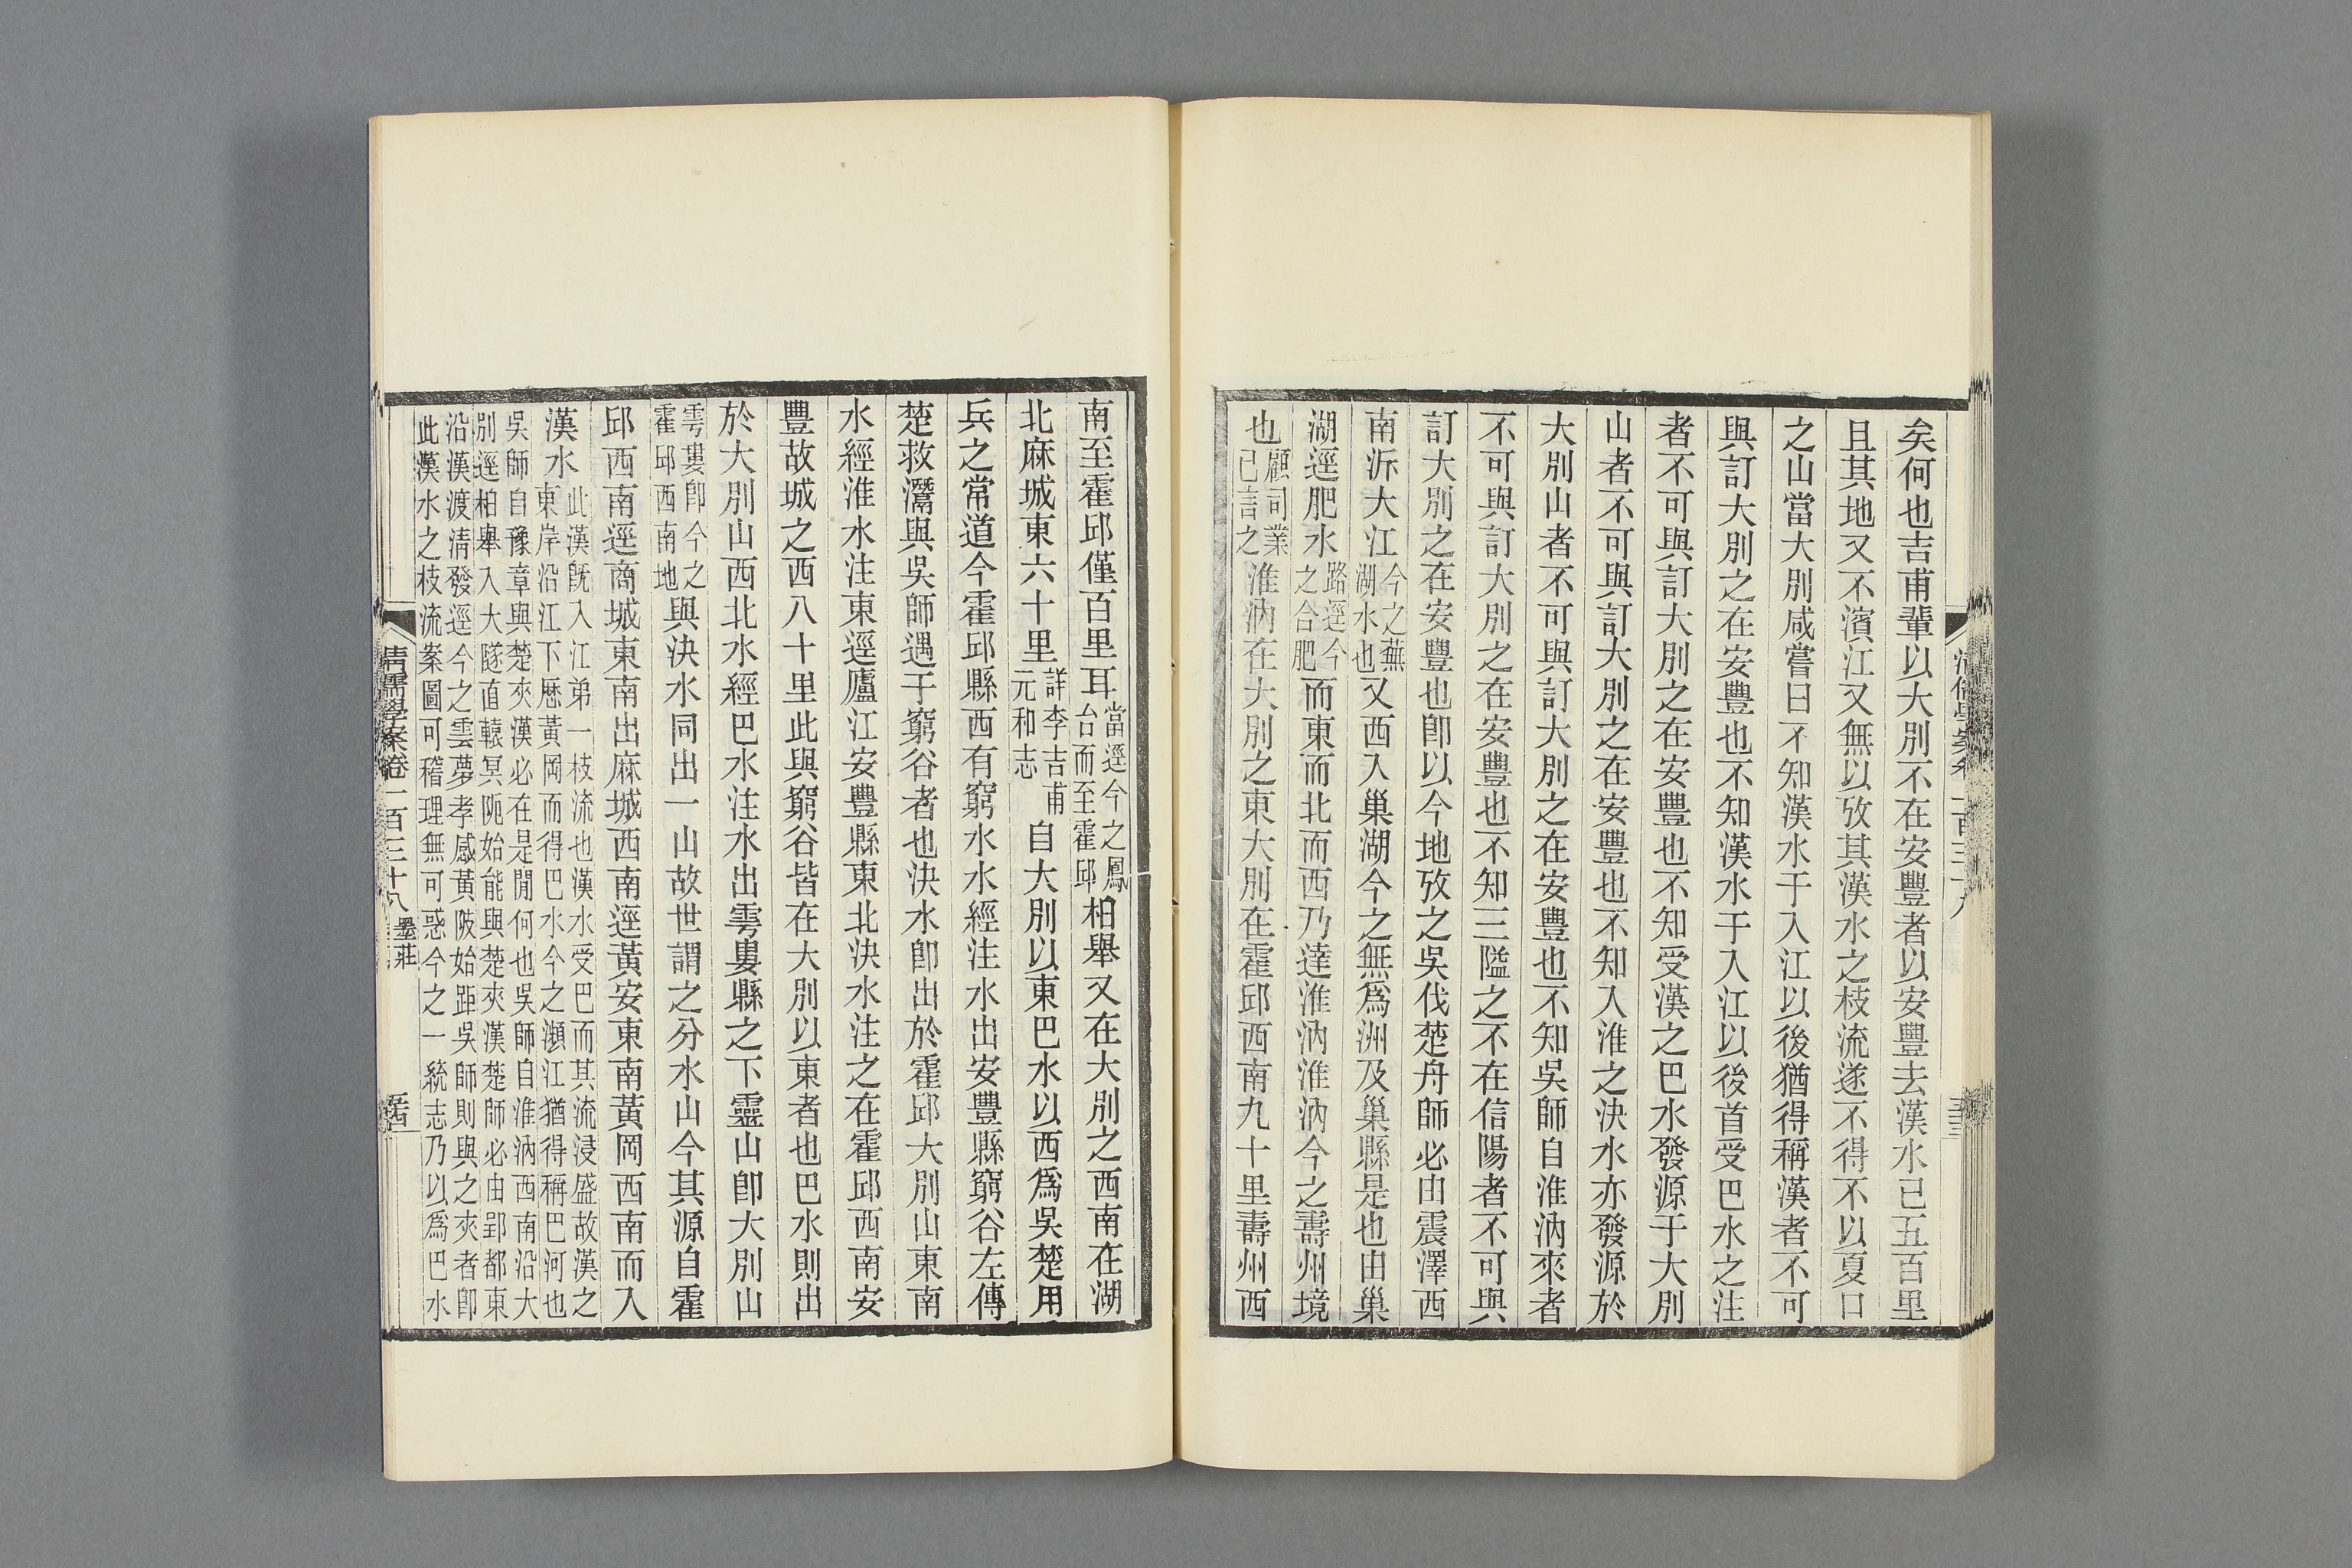 矣何也吉甫輩以大別不在安豐者以安豐去漢水已五百里
且其地又不濱江又無以攷其漢水之枝流遂不得不以夏口
之山當大別咸嘗曰不知漢水于入江以後猶得稱漢者不可
與訂大別之在安豐也不知漢水于入江以後首受巴水之注
者不可與訂大別之在安豐也不知受漢之巴水發源于大別
山者不可與訂大別之在安豐也不知入淮之決水亦發源於
大別山者不可與訂大別之在安豐也不知吳師自淮汭來者
不可與訂大別之在安豐也不知三隘之不在信陽者不可與
訂大別之在安豐也卽以今地攷之吳伐楚舟師必由震澤西
南泝大江今之蕪湖水也又西入巢湖今之無爲洲及巢縣是也由巢
湖逕肥水路逕今之合肥而東而北而西乃達淮汭淮汭今之壽州境
也顧司業已言之淮汭在大別之東大別在霍邱西南九十里壽州西
南至霍邱僅百里耳當逕今之鳳台而至霍邱柏舉又在大別之西南在湖
北麻城東六十里詳李吉甫元和志自大別以東巴水以西爲吳楚用
兵之常道今霍邱縣西有窮水水經注水出安豐縣窮谷左傳
楚救灊與吳師遇于窮谷者也決水卽出於霍邱大別山東南
水經淮水注東逕廬江安豐縣東北決水注之在霍邱西南安
豐故城之西八十里此與窮谷皆在大別以東者也巴水則出
於大別山西北水經巴水注水出雩婁縣之下靈山卽大別山
雩婁卽今之霍邱西南地與決水同出一山故世謂之分水山今其源自霍
邱西南逕商城東南出麻城西南逕黃安東南黃岡西南而入
漢水此漢旣入江弟一枝流也漢水受巴而其流浸盛故漢之
東岸沿江下歷黃岡而得巴水今之瀕江猶得稱巴河也
吳師自豫章與楚夾漢必在是閒何也吳師自淮汭西南沿大
別逕柏舉入大隧直轅冥阨始能與楚夾漢楚師必由郢都東
沿漢渡淸發逕今之雲夢孝感黃陂始距吳師則與之夾者卽
此漢水之枝流案圖可稽理無可惑今之一統志乃以爲巴水
清儒學案卷一百三十八
墨莊